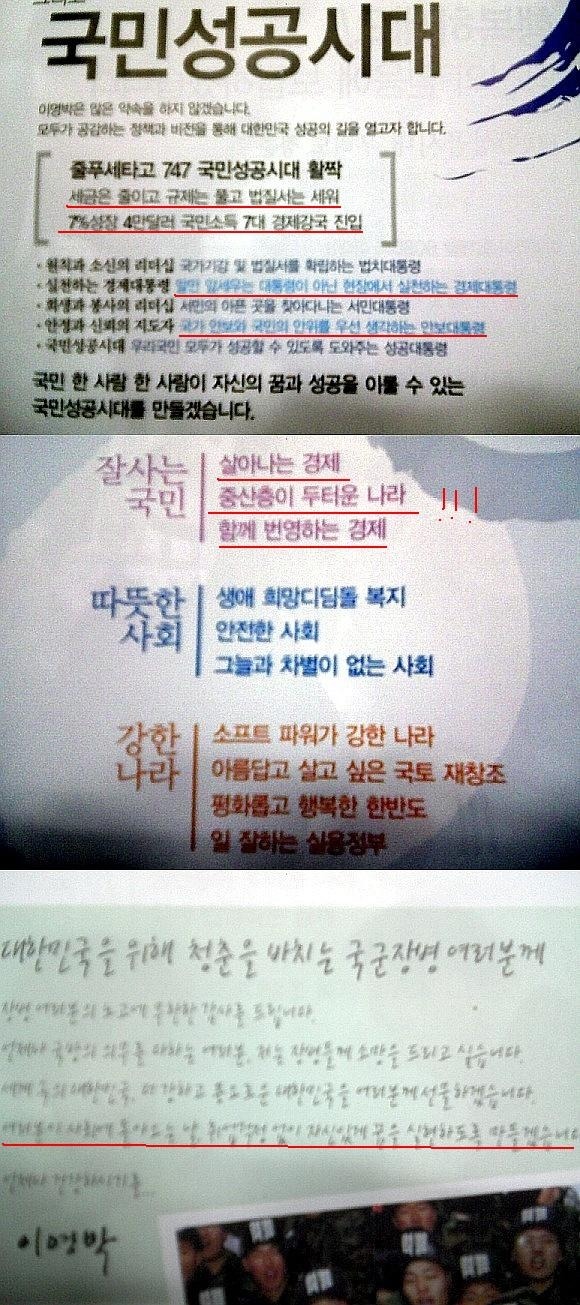 국민성공시대
이명박은 많은 약속을 하지 않겠습니다.
모두가 공감하는 정책과 비전을 통해 대한민국 성공의 길을 열고자 합니다.
줄푸세타고 747 국민성공시대 활짝
세금은 줄이고 규제는 풀고 법질서는 세워
7%성장 4만달러 국민소득 7대 경제강국 진입
· 원칙과 소신의 리더십 국가기강 및 법질서를 확립하는 법치대통령
· 실천하는 경제대통령 말만 앞세우는 대통령이 아닌 현장에서 실천하는 경제대통령
· 희생과 봉사의 리더십 서민의 아픈 곳을 찾아다니는 서민대통령
· 안정과 신뢰의 지도자 국가 안보와 국민의 안위를 우선 생각하는 안보대통령
· 국민성공시대 우리국민 모두가 성공할 수 있도록 도와주는 성공대통령
국민 한 사람 한 사람이 자신의 꿈과 성공을 이룰 수 있는
국민성공시대를 만들겠습니다.
잘사는
국민
살아나는 경제
중산층이 두터운 나라
함께 번영하는 경제
!!!
따뜻한
사회
생애 희망디딤돌 복지
안전한 사회
그늘과 차별이 없는 사회
강한
나라
소프트 파워가 강한 나라
아름답고 살고 싶은 국토 재창조
평화롭고 행복한 한반도
일 잘하는 실용정부
대한민국을 위해 청춘을 바치는 국군장병 여러분께
장병 여러분의 노고에 무한한 감사를 드립니다.
언제나 국방의 의무를 다하는 여러분, 저는 장병들께 소망을 드리고 싶습니다.
세계 속의 대한민국, 더 강하고 풍요로운 대한민국을 여러분께 선물하겠습니다.
여러분이 사회에 돌아오는 날, 취업걱정 없이 자신있게 꿈을 실현하도록 만들겠습니다
언제나 건강하시기를...
이명박